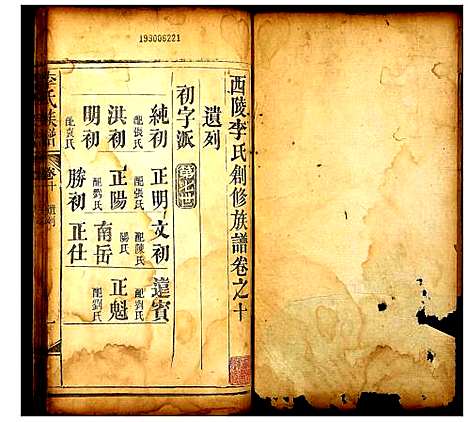 193006221
西陵李氏創修族譜卷之十
遺列
初字派
純初 配張氏 正明 文初 遠賓
洪初 配張氏 正陽 配陳氏 配劉氏
明初 配鄧氏 南岳 陽氏 正魁
配袁氏 勝初 正仕 配劉氏
李氏族譜 卷十 遺列 一